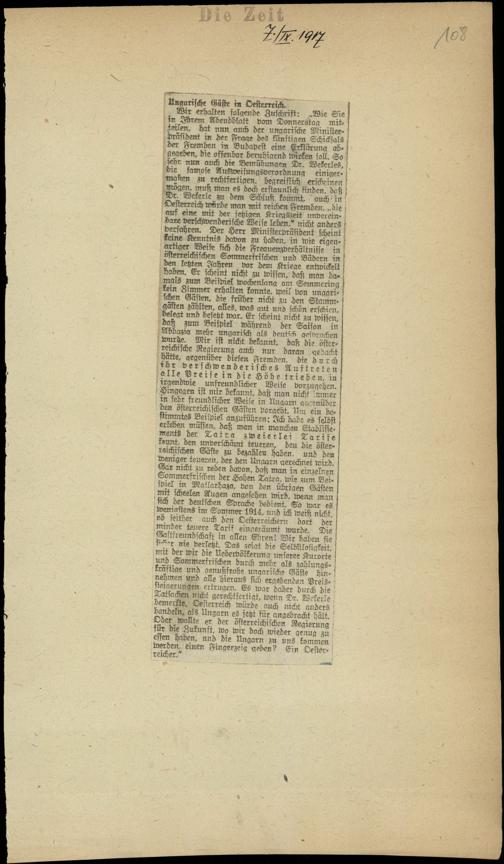 Die Zeit
7./IX. 1917
108
Ungarische Gäste in Oesterreich.
Wir erhalten folgende Zuschrift: „Wie Sie
in Ihrem Abendblatt vom Donnerstag mit-
teilen, hat nun auch der ungarische Minister-
präsident in der Frage des künftigen Schicksals
der Fremden in Budapest eine Erklärung ab-
gegeben, die offenbar beruhigend wirken soll. So
sehr nun auch die Bemühungen Dr. Wekerles,
die famose Ausweisungsverordnung einiger-
maßen zu rechtfertigen, begreiflich erscheinen
mögen, muß man es doch erstaunlich finden, daß
Dr. Wekerle zu dem Schluß kommt, auch in
Oesterreich würde man mit reichen Fremden, „die
auf eine mit der jetzigen Kriegszeit unverein-
bare verschwenderische Weise leben,“ nicht anders
verfahren. Der Herr Ministerpräsident scheint
keine Kenntnis davon zu haben, in wie eigen-
artiger Weise sich die Frequenzverhältnisse in
österreichischen Sommerfrischen und Bädern in
den letzten Jahren vor dem Kriege entwickelt
haben. Er scheint nicht zu wissen, daß man da-
mals zum Beispiel wochenlang am Semmering
kein Zimmer erhalten konnte, weil von ungari-
schen Gästen, die früher nicht zu den Stamm-
gästen zählten, alles, was gut und schön erschien,
belegt und besetzt war. Er scheint nicht zu wissen,
daß zum Beispiel während der Saison in
Abbazia mehr ungarisch als deutsch gesprochen
wurde. Mir ist nicht bekannt, daß die öster-
reichische Regierung auch nur daran gedacht
hätte, gegenüber diesen Fremden, die durch
ihr verschwenderisches Auftreten
alle Preise in die Höhe trieben, in
irgendwie unfreundlicher Weise vorzugehen.
Hingegen ist mir bekannt, daß man nicht immer
in sehr freundlicher Weise in Ungarn gegenüber
den österreichischen Gästen vorgeht. Um ein be-
stimmtes Beispiel anzuführen: Ich habe es selbst
erleben müssen, daß man in manchen Etablisse-
ments der Tatra zweierlei Tarife
kennt, den unverschämt teueren, den die öster-
reichischen Gäste zu bezahlen haben, und den
weniger teueren, der den Ungarn gerechnet wird.
Gar nicht zu reden davon, daß man in einzelnen
Sommerfrischen der Hohen Tatra, wie zum Bei-
spiel in Matlarhaza, von den übrigen Gästen
mit scheelen Augen angesehen wird, wenn man
sich der deutschen Sprache bedient. So war es
wenigstens im Sommer 1914, und ich weiß nicht,
ob seither auch den Oesterreichern dort der
minder teuere Tarif eingeräumt wurde. Die
Gastfreundschaft in allen Ehren! Wir haben sie
nie verletzt. Das zeigt die Selbstlosigkeit,
mit der wir die Uebervölkerung unserer Kurorte
und Sommerfrischen durch mehr als zahlungs-
kräftige und genußfrohe ungarische Gäste hin-
nehmen und alle hieraus sich ergebenden Preis-
steigerungen ertrugen. Es war daher durch die
Tatsachen nicht gerechtfertigt, wenn Dr. Wekerle
bemerkte, Oesterreich würde auch nicht anders
handeln, als Ungarn es jetzt für angebracht hält.
Oder wollte er der österreichischen Regierung
für die Zukunft, wo wir doch wieder genug zu
essen haben, und die Ungarn zu uns kommen
werden, einen Fingerzeig geben? Ein Oester-
reicher.“